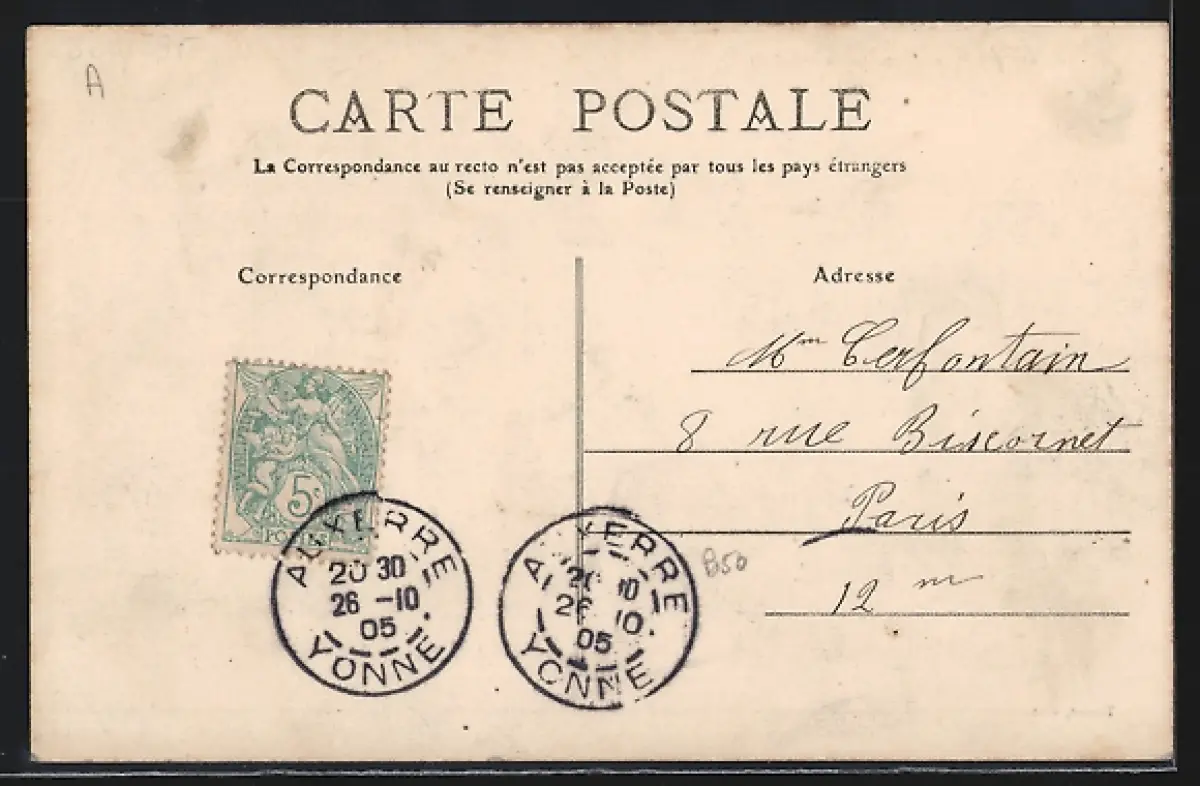 A
CARTE POSTALE
La Correspondance au recto n'est pas acceptée par tous les pays étrangers
(Se renseigner à la Poste)
Correspondance
Adresse
Mm Cerfontain
8 rue Biscornet
Paris
12 m
5c
AUXERRE
20 30
26 -10
05
YONNE
AUXERRE
26 10
05
YONNE
B50